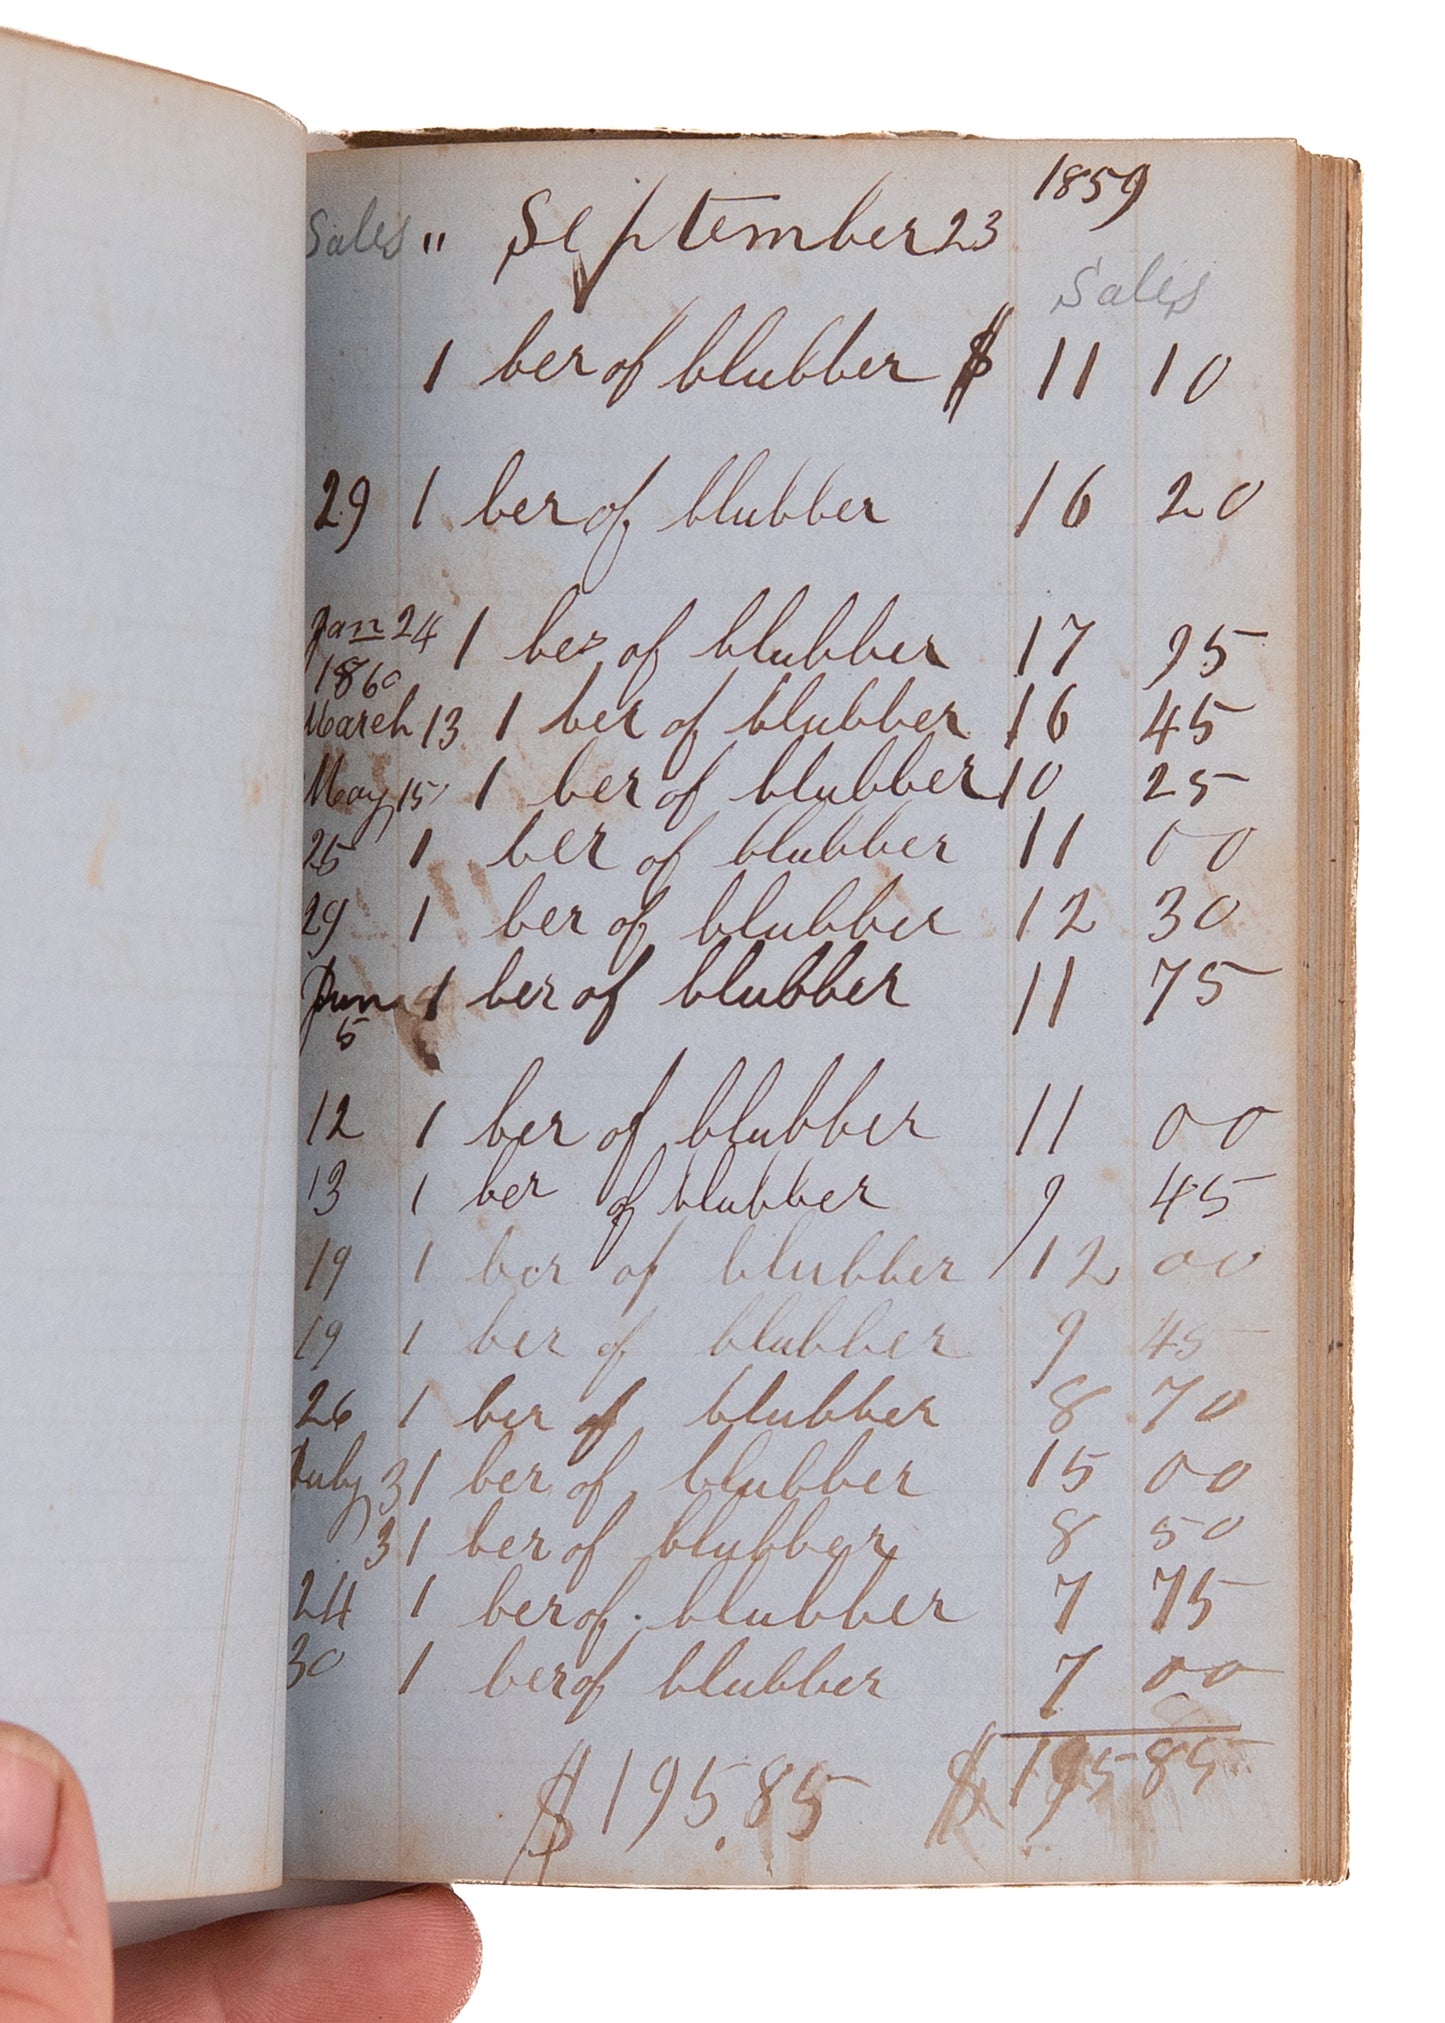 1859
Sales " September 23
Sales
1 ber of blubber $ 11 10
29 1 ber of blubber 16 20
Jan 24 1 ber of blubber 17 95
1860
March 13 1 ber of blubber 16 45
May 15 1 ber of blubber 10 25
25 1 ber of blubber 11 00
29 1 ber of blubber 12 30
Jun 1 ber of blubber 11 75
5
12 1 ber of blubber 11 00
13 1 ber of blubber 9 45
19 1 ber of blubber 12 00
19 1 ber of blubber 9 45
26 1 ber of blubber 8 70
July 3 1 ber of blubber 15 00
3 1 ber of blubber 8 50
24 1 ber of blubber 7 75
30 1 ber of blubber 7 00
$195.85 $195 85